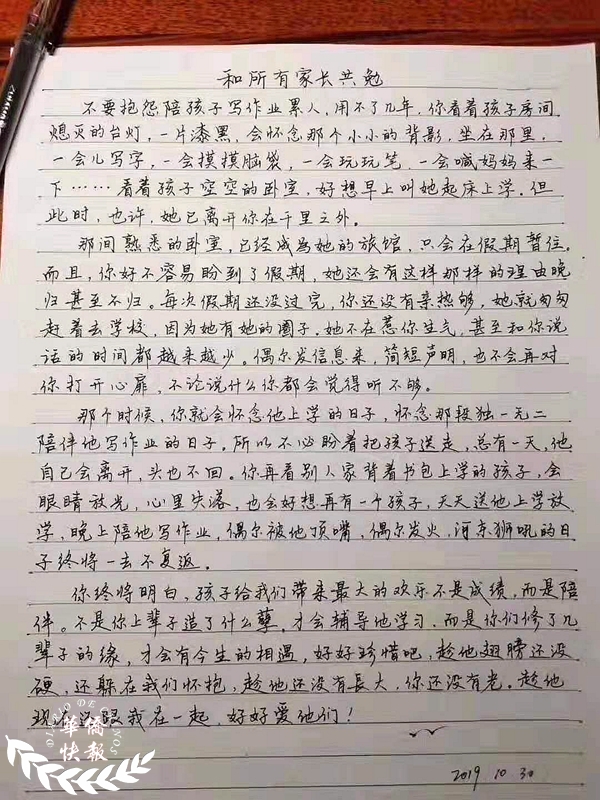 和所有家长共勉
不要抱怨陪孩子写作业累人,用不了几年,你看着孩子房间
熄灭的台灯,一片漆黑,会怀念那个小小的背影,坐在那里,
一会儿写字,一会摸摸脑袋,一会玩玩笔,一会喊妈妈来一
下……看着孩子空空的卧室,好想早上叫她起床上学。但
此时,也许,她已离开你在千里之外。
那间熟悉的卧室,已经成为她的旅馆,只会在假期暂住。
而且,你好不容易盼到了假期,她还会有这样那样的理由晚
归甚至不归。每次假期还没过完,你还没有亲热够,她就匆匆
赶着去学校,因为她有她的圈子。她不在惹你生气,甚至和你说
话的时间都越来越少。偶尔发信息来,简短声明,也不会再对
你打开心扉,不论说什么你都会觉得听不够。
那个时候,你就会怀念他上学的日子,怀念那段独一无二
陪伴他写作业的日子。所以不必盼着把孩子送走,总有一天,他
自己会离开,头也不回。你再看别人家背着书包上学的孩子,会
眼睛放光,心里失落,也会好想再有一个孩子,天天送他上学放
学,晚上陪他写作业,偶尔被他顶嘴,偶尔发火,河东狮吼的日
子终将一去不复返。
你终将明白,孩子给我们带来最大的欢乐不是成绩,而是陪
伴。不是你上辈子造了什么孽,才会辅导他学习,而是你们修了几
辈子的缘,才会有今生的相遇,好好珍惜吧,趁他翅膀还没
硬,还躲在我们怀抱,趁他还没有长大,你还没有老。趁他
现在还跟我在一起,好好爱他们!
2019 10 30
華僑
快報